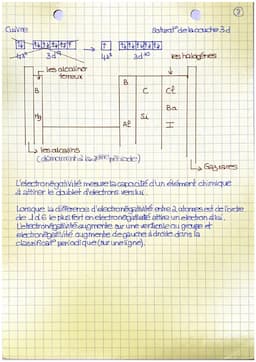 2
Cuivre
Saturat° de la couche 3d
4s² 3d⁹ → 4s¹ 3d¹⁰
les halogènes
les alcalino terreux
B
B C Cl
Mg
Si Ba
Al I
les alcalins
(démarrent à la 2ème période)
Gaz rares
L'électronégativité mesure la capacité d'un élément chimique
à attirer le doublet d'électrons vers lui.
Lorsque la différence d'électronégativité entre 2 atomes est de l'ordre
de 1,6 le plus fort en électronégativité attire un électron à lui.
L'électronégativité augmente sur une verticale ou groupe et
électronégativité augmente de gauche à droite dans la
classificat° périodique (sur une ligne).